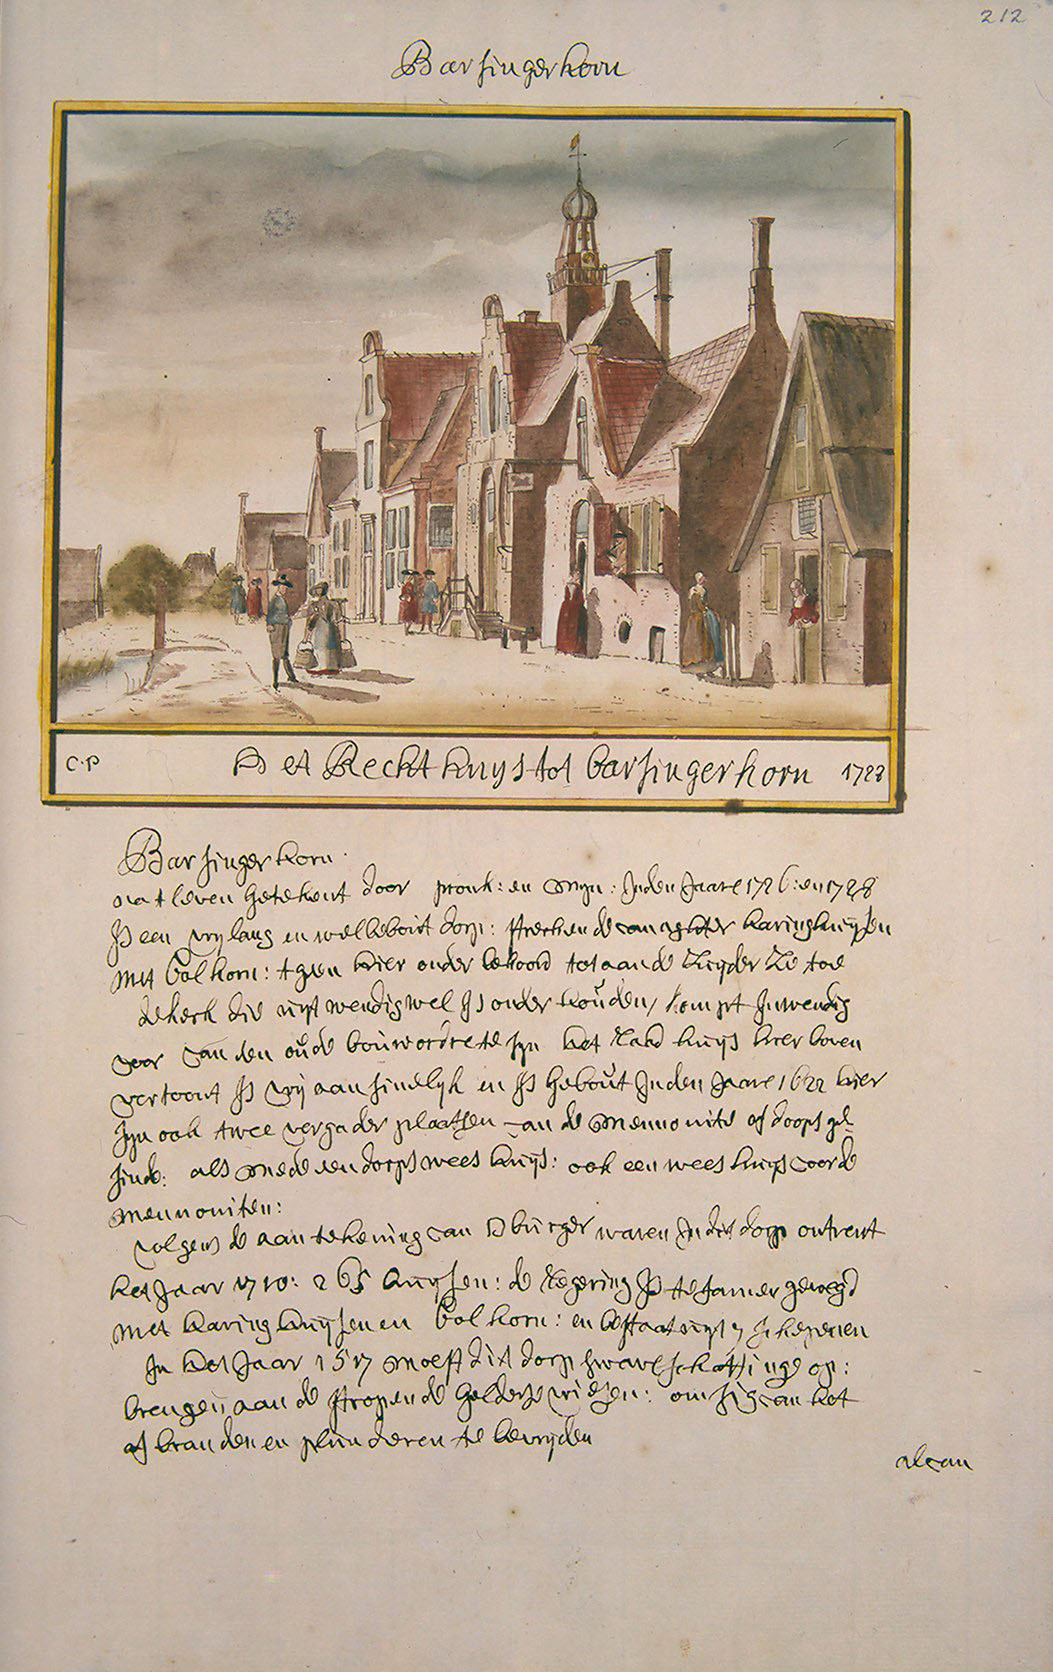 212
Barsingerhorn
C·P Het Rechthuys tot barsingerhorn 1728
Barsingerhorn
na t leven Getekent door pronk: en Myn: Inden Jaare 1726: en 1728
Is een vry lang en welbebout dorp: streckende van agter haringhuysen
met Colhorn: t geen hier onder behoord tot aan de Zuyder Ze toe
de kerk die uyt wendig wel Is onder houden, komt Inwendig
voor van den oude bouwordre te syn het Raad huys hier boven
vertoont Is vry aansinelyk en Is Gebout Inden Jaare 1622 hier
syn ook twee vergader plaatsen van de Mennonite of doopsge
sinde: als mede een dorps wees huys: ook een wees huys voor de
mennoniten:
volgens de aantekening van D burger waren In dit dorp ontrent
het Jaar 1710: 265 huysen: de Regering Is te samen gevoegd
met haringhuysen en Colhorn: en bestaat uyt 7 schepenen
In het Jaar 1517 moest dit dorp sware schattinge op:
brengen aan de stropende Gelderse vriesen: om sig van het
af branden en plunderen te bevryden